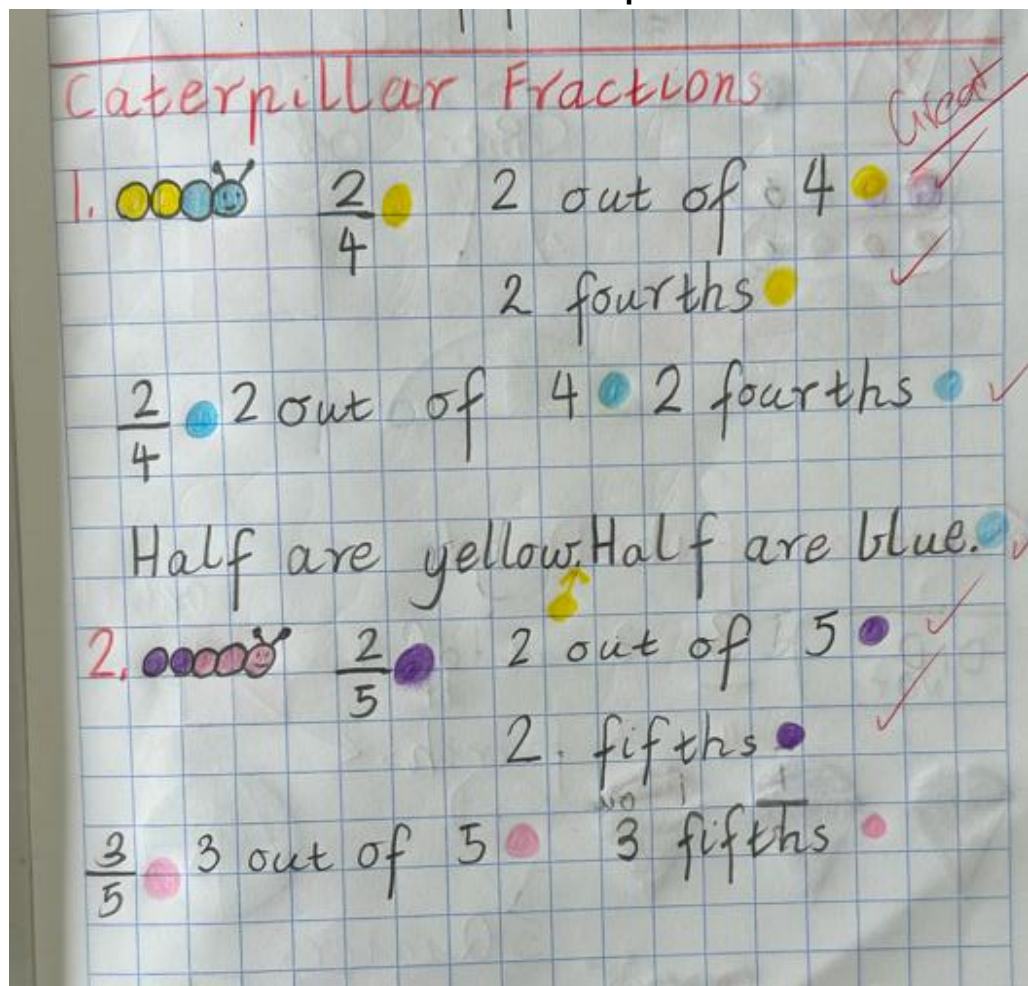 Caterpillar Fractions
Great
1. 2/4 2 out of 4
2 fourths
2/4 2 out of 4 2 fourths
Half are yellow. Half are blue.
2. 2/5 2 out of 5
2. fifths
3/5 3 out of 5 3 fifths